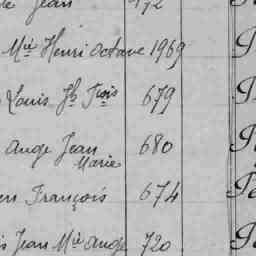 Jean 172
Mie Henri Octave 1969
Louis Jh Fois 679
Ange Jean 680
Marie
François 674
Jean Mie Ange 720